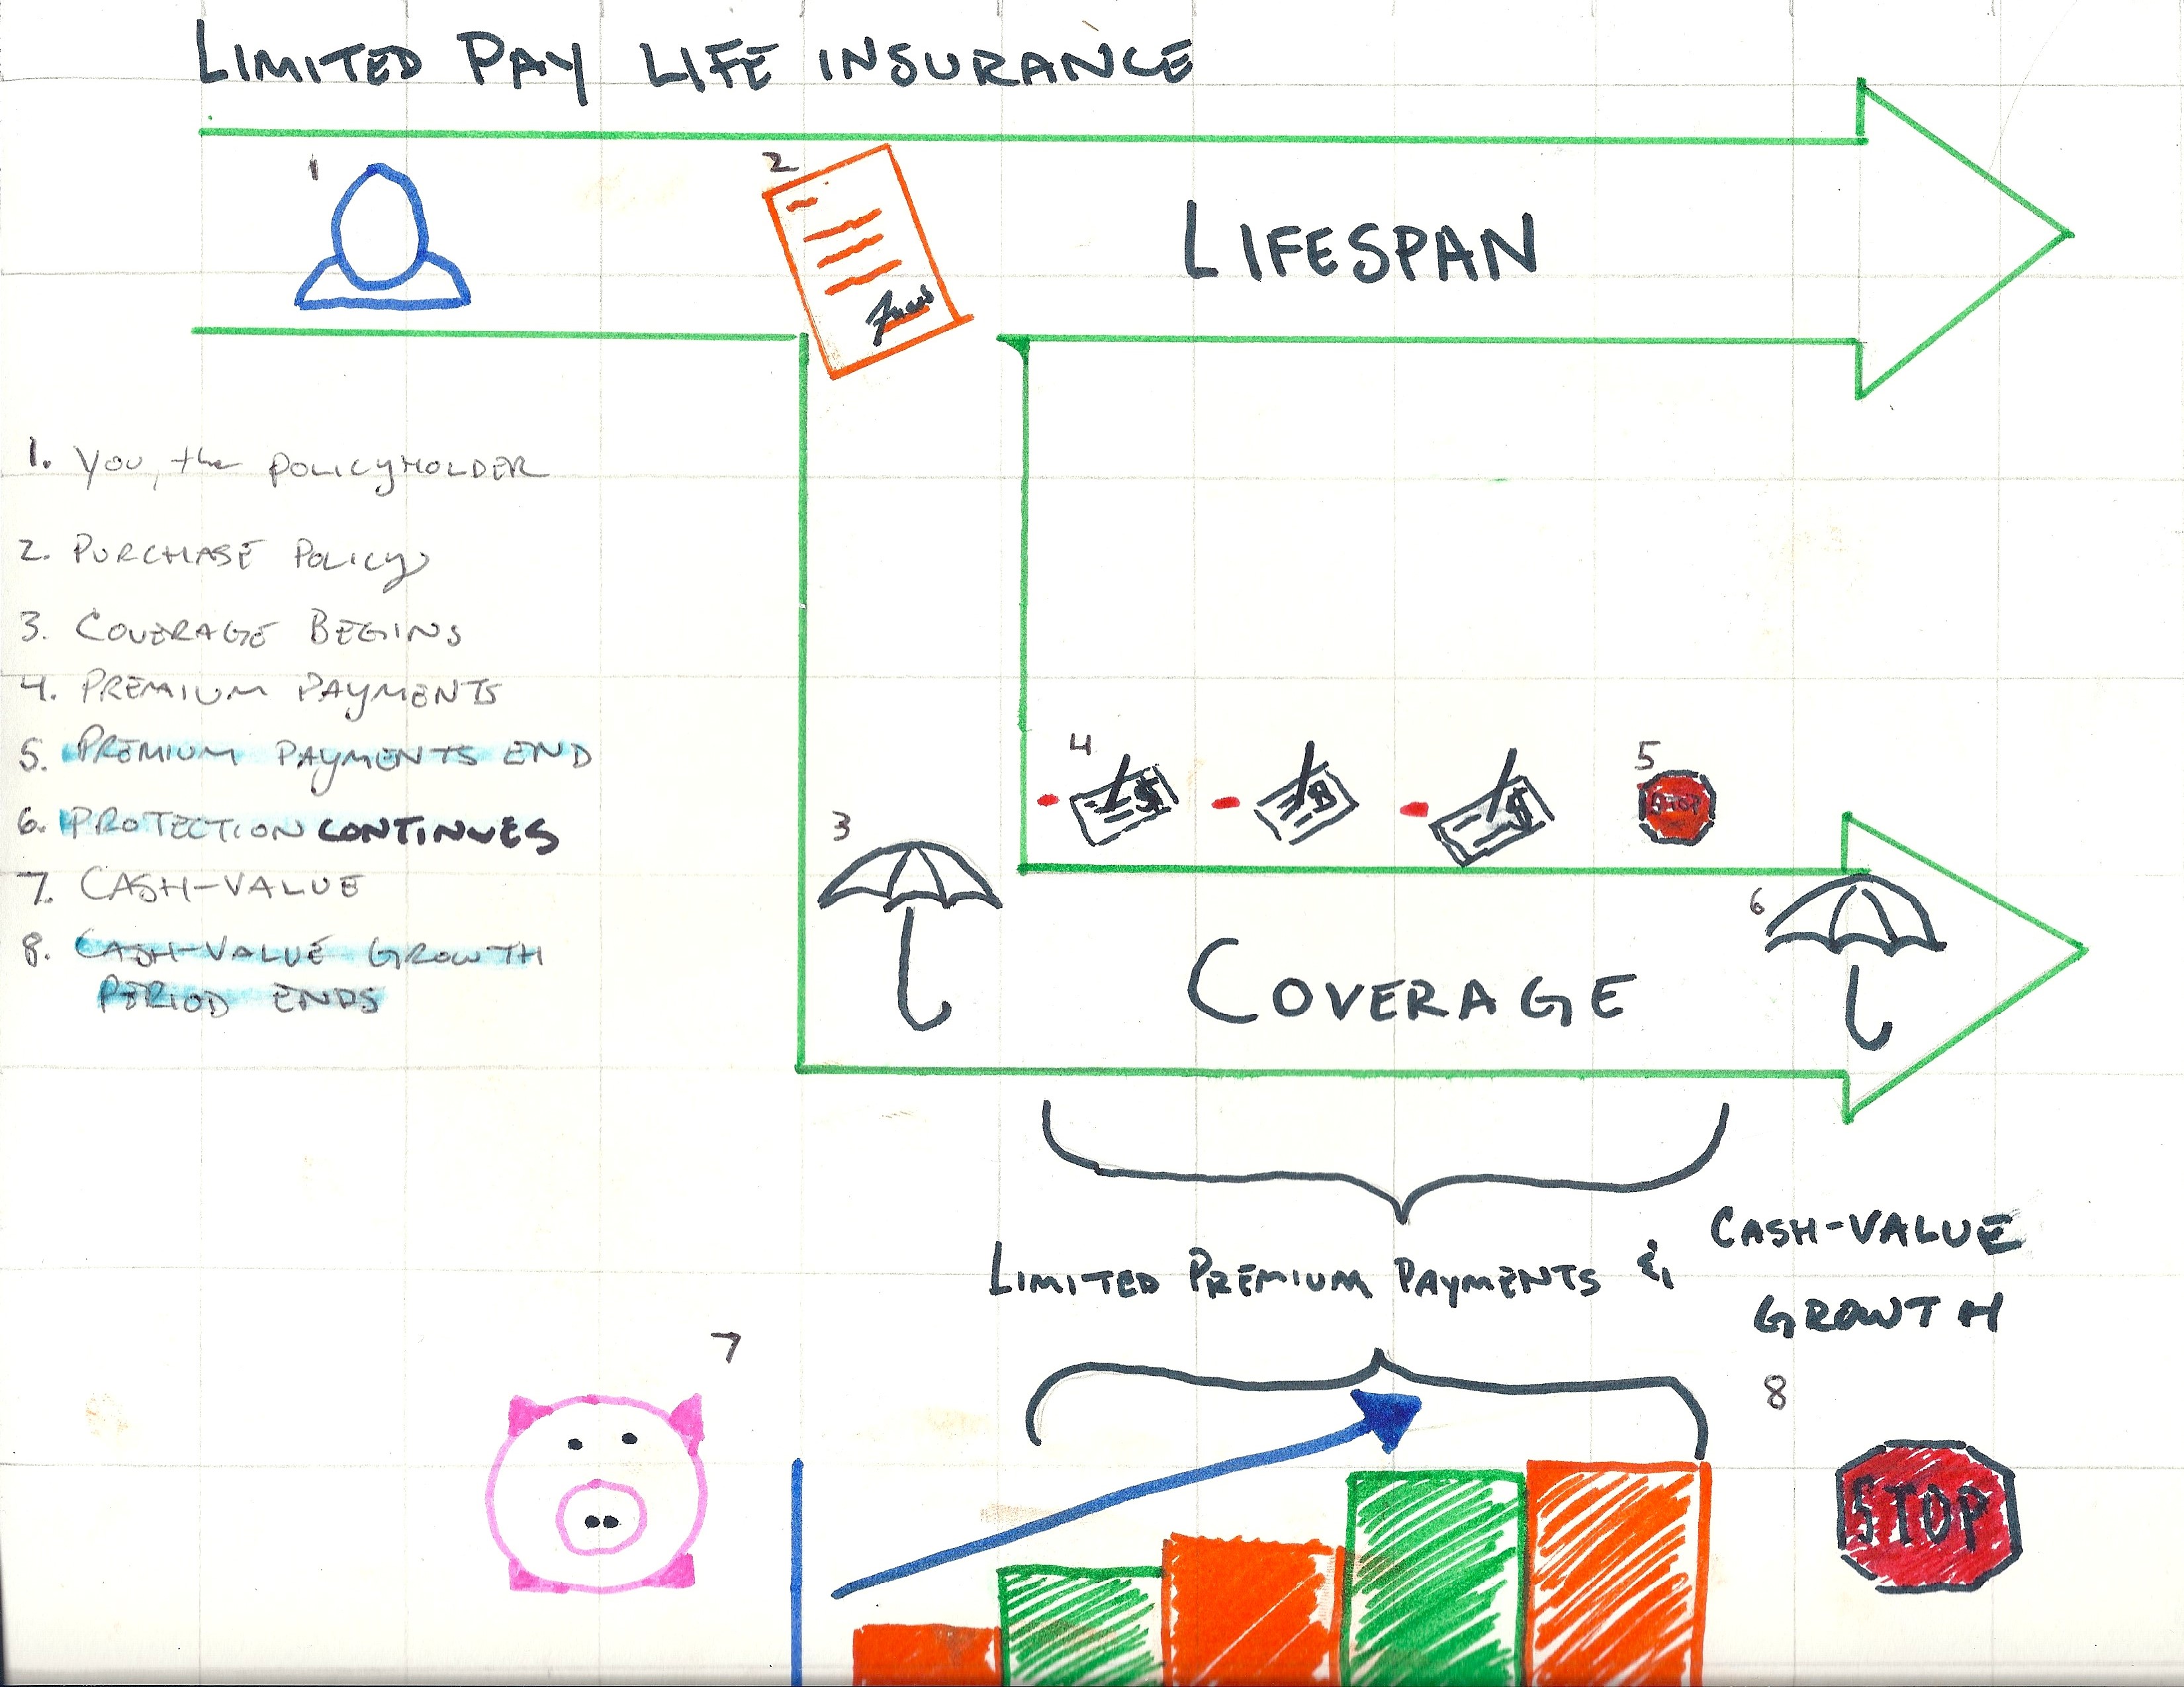 LIMITED PAY LIFE INSURANCE
1
2
LIFESPAN
1. YOU, the POLICYHOLDER
2. PURCHASE POLICY
3. COVERAGE BEGINS
4. PREMIUM PAYMENTS
5. PREMIUM PAYMENTS END
6. PROTECTION CONTINUES
7. CASH-VALUE
8. CASH-VALUE GROWTH
PERIOD ENDS
4
$
$
5
STOP
3
6
COVERAGE
LIMITED PREMIUM PAYMENTS & CASH-VALUE
GROWTH
7
8
STOP